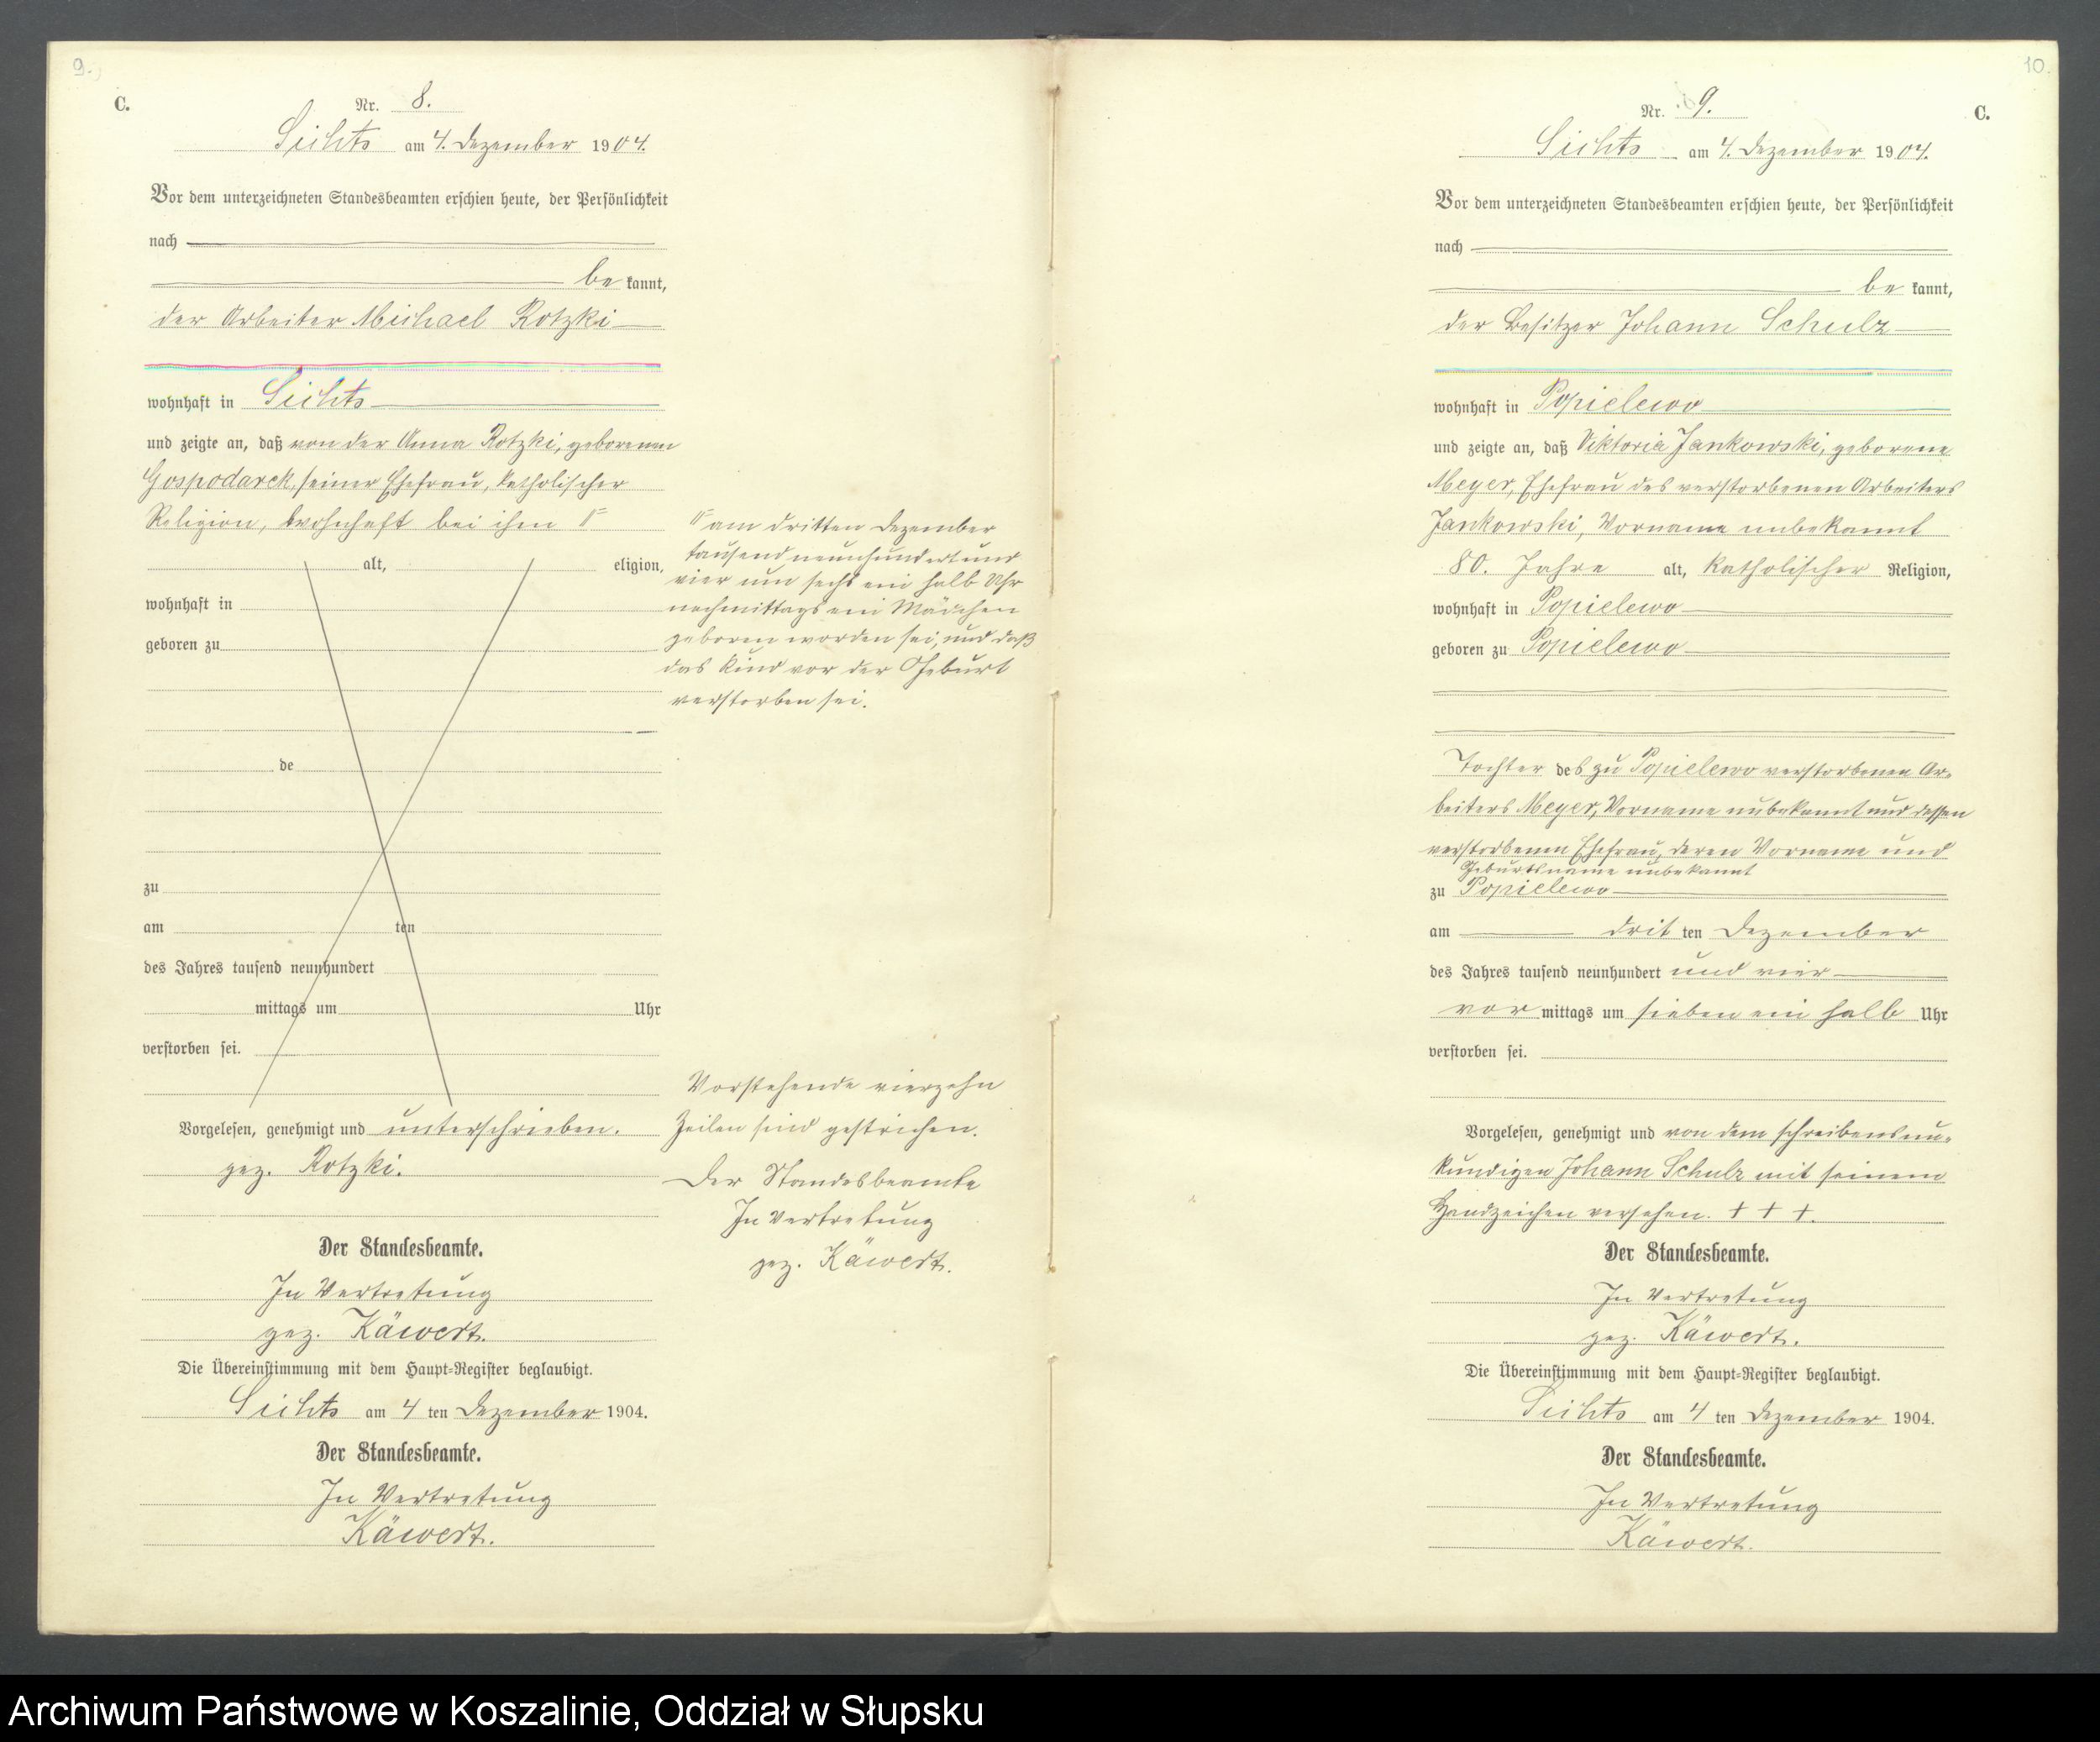 9.
C.
Nr. 8.
Sichts am 4. Dezember 1904.
Vor dem unterzeichneten Standesbeamten erschien heute, der Persönlichkeit
nach
be kannt,
der Arbeiter Michael Rotzki
wohnhaft in Sichts
und zeigte an, daß von der Anna Rotzki, geborenen
Gospodarek, seiner Ehefrau, katholischer
Religion, wohnhaft bei ihm
alt, eligion,
wohnhaft in
geboren zu
de
zu
am ten
des Jahres tausend neunhundert
mittags um Uhr
verstorben sei.
Vorgelesen, genehmigt und unterschrieben.
gez. Rotzki.
Der Standesbeamte.
In Vertretung
gez. Käwert.
Die Übereinstimmung mit dem Haupt-Register beglaubigt.
Sichts am 4 ten Dezember 1904.
Der Standesbeamte.
In Vertretung
Käwert.
am dritten Dezember
tausend neunhundert und
vier um sechs ein halb Uhr
nachmittags ein Mädchen
geboren worden sei, und daß
das Kind vor der Geburt
verstorben sei.
Vorstehende vierzehn
Zeilen sind gestrichen.
Der Standesbeamte
In Vertretung
gez. Käwert.
10.
Nr. 9.
C.
Sichts am 4. Dezember 1904.
Vor dem unterzeichneten Standesbeamten erschien heute, der Persönlichkeit
nach
be kannt,
der Besitzer Johann Schulz
wohnhaft in Popielewo
und zeigte an, daß Viktoria Jankowski, geborene
Meyer, Ehefrau des verstorbenen Arbeiters
Jankowski, Vorname unbekannt
80. Jahre alt, katholischer Religion,
wohnhaft in Popielewo
geboren zu Popielewo
Tochter des zu Popielewo verstorbenen Ar-
beiters Meyer, Vorname unbekannt und dessen
verstorbenen Ehefrau, deren Vorname und
Geburtsname unbekannt
zu Popielewo
am drit ten Dezember
des Jahres tausend neunhundert und vier
vor mittags um sieben ein halb Uhr
verstorben sei.
Vorgelesen, genehmigt und von dem schreibensun-
kundigen Johann Schulz mit seinem
Handzeichen versehen. + + +.
Der Standesbeamte.
In Vertretung
gez. Käwert.
Die Übereinstimmung mit dem Haupt-Register beglaubigt.
Sichts am 4 ten Dezember 1904.
Der Standesbeamte.
In Vertretung
Käwert.
Archiwum Państwowe w Koszalinie, Oddział w Słupsku